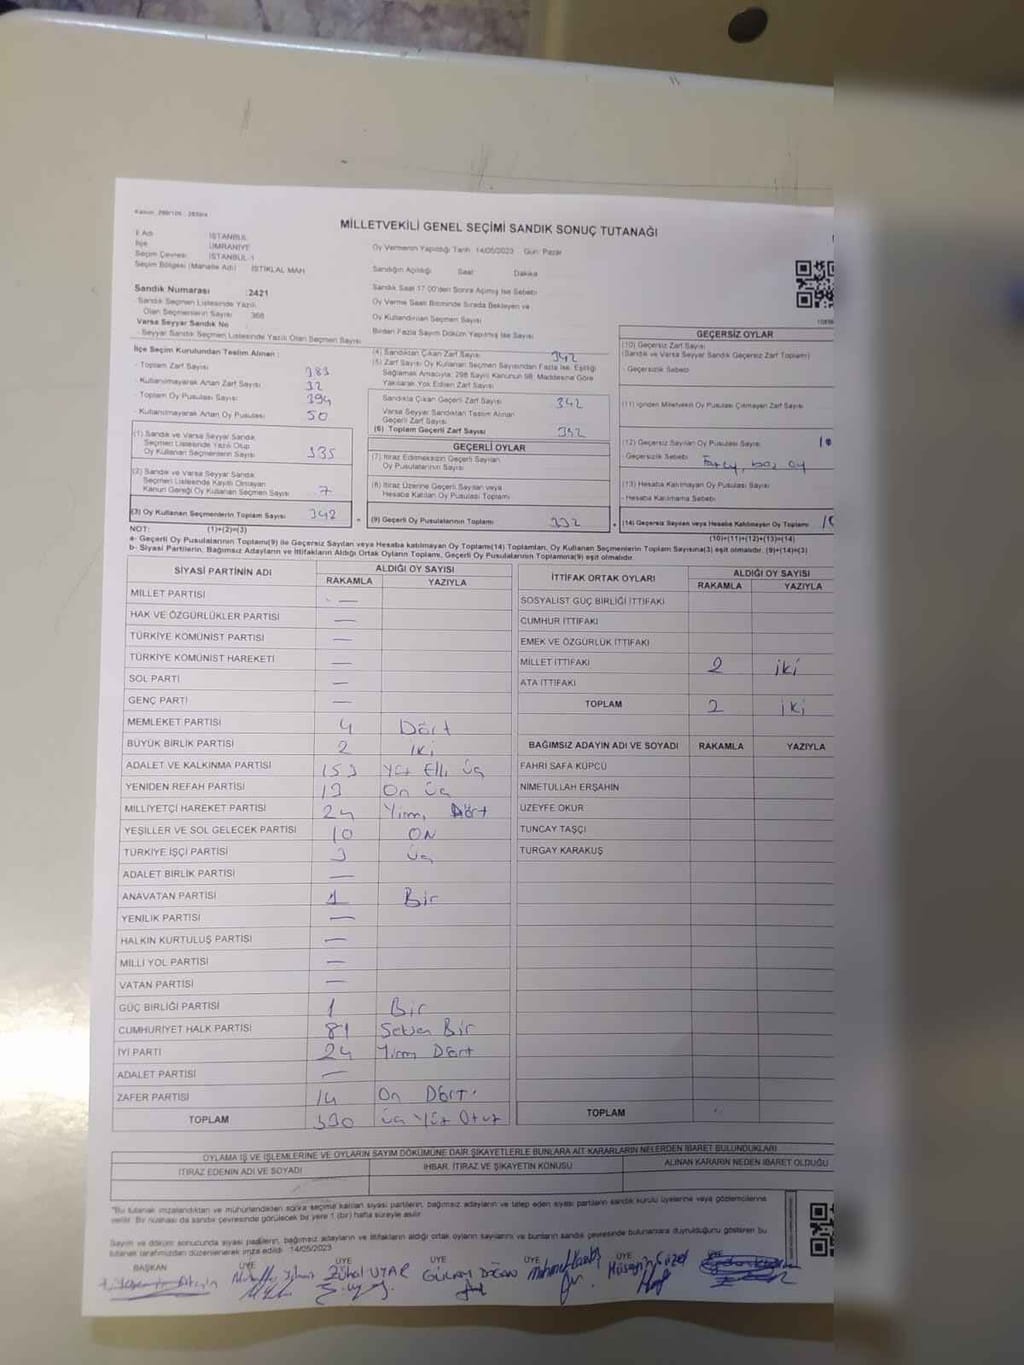 MİLLETVEKİLİ GENEL SEÇİMİ SANDIK SONUÇ TUTANAĞI
İl Adı İSTANBUL
İlçe ÜMRANİYE
Seçim Çevresi İSTANBUL-1
Seçim Bölgesi (Mahalle Adı) İSTİKLAL MAH
Sandık Numarası :2421
Sandık Seçmen Listesinde Yazılı
Olan Seçmenlerin Sayısı 368
Varsa Seyyar Sandık No
Seyyar Sandık Seçmen Listesinde Yazılı Olan Seçmen Sayısı
Oy Vermenin Yapıldığı Tarih 14/05/2023 Gün: Pazar
Sandığın Açıldığı Saat Dakika
Sandık Saat 17.00'den Sonra Açılmış İse Sebebi
Oy Verme Saati Bitiminde Sırada Bekleyen ve
Oy Kullandırılan Seçmen Sayısı
Birden Fazla Sayım Döküm Yapılmış İse Sayısı
İlçe Seçim Kurulundan Teslim Alınan :
- Toplam Zarf Sayısı 383
- Kullanılmayarak Artan Zarf Sayısı 32
- Toplam Oy Pusulası Sayısı 394
- Kullanılmayarak Artan Oy Pusulası 50
(1) Sandık ve Varsa Seyyar Sandık
Seçmen Listesinde Yazılı Olup
Oy Kullanan Seçmenlerin Sayısı 335
(2) Sandık ve Varsa Seyyar Sandık
Seçmen Listesinde Kayıtlı Olmayan
Kanun Gereği Oy Kullanan Seçmen Sayısı 7
(3) Oy Kullanan Seçmenlerin Toplam Sayısı 342
(4) Sandıktan Çıkan Zarf Sayısı 342
(5) Zarf Sayısı Oy Kullanan Seçmen Sayısından Fazla İse, Eşitliği
Sağlamak Amacıyla; 298 Sayılı Kanunun 98. Maddesine Göre
Yakılarak Yok Edilen Zarf Sayısı
Sandıkta Çıkan Geçerli Zarf Sayısı 342
Varsa Seyyar Sandıktan Teslim Alınan
Geçerli Zarf Sayısı
(6) Toplam Geçerli Zarf Sayısı 342
GEÇERLİ OYLAR
(7) İtiraz Edilmeksizin Geçerli Sayılan
Oy Pusulalarının Sayısı
(8) İtiraz Üzerine Geçerli Sayılan veya
Hesaba Katılan Oy Pusulası Toplamı
(9) Geçerli Oy Pusulalarının Toplamı 332
GEÇERSİZ OYLAR
(10) Geçersiz Zarf Sayısı
(Sandık ve Varsa Seyyar Sandık Geçersiz Zarf Toplamı)
- Geçersizlik Sebebi
(11) İçinden Milletvekili Oy Pusulası Çıkmayan Zarf Sayısı
(12) Geçersiz Sayılan Oy Pusulası Sayısı 10
- Geçersizlik Sebebi
(13) Hesaba Katılmayan Oy Pusulası Sayısı
- Hesaba Katılmama Sebebi
(14) Geçersiz Sayılan veya Hesaba Katılmayan Oy Toplamı
NOT: (1)+(2)=(3) (10)+(11)+(12)+(13)=(14)
a- Geçerli Oy Pusulalarının Toplamı(9) ile Geçersiz Sayılan veya Hesaba katılmayan Oy Toplamı(14) Toplamları, Oy Kullanan Seçmenlerin Toplam Sayısına(3) eşit olmalıdır. (9)+(14)=(3)
b- Siyasi Partilerin, Bağımsız Adayların ve İttifakların Aldığı Ortak Oyların Toplamı, Geçerli Oy Pusulalarının Toplamına(9) eşit olmalıdır.
SİYASİ PARTİNİN ADI ALDIĞI OY SAYISI
RAKAMLA YAZIYLA
MİLLET PARTİSI —
HAK VE ÖZGÜRLÜKLER PARTİSİ —
TÜRKİYE KOMÜNİST PARTİSİ —
TÜRKİYE KOMÜNİST HAREKETİ —
SOL PARTİ —
GENÇ PARTİ —
MEMLEKET PARTİSİ 4 Dört
BÜYÜK BİRLİK PARTİSİ 2 iki
ADALET VE KALKINMA PARTİSİ 153 Yüz Elli üç
YENİDEN REFAH PARTİSİ 13 On üç
MİLLİYETÇİ HAREKET PARTİSİ 24 Yirmi Dört
YEŞİLLER VE SOL GELECEK PARTİSİ 10 ON
TÜRKİYE İŞÇİ PARTİSİ 3 üç
ADALET BİRLİK PARTİSİ —
ANAVATAN PARTİSİ 1 Bir
YENİLİK PARTİSİ —
HALKIN KURTULUŞ PARTİSİ —
MİLLİ YOL PARTİSİ —
VATAN PARTİSİ —
GÜÇ BİRLİĞİ PARTİSİ 1 Bir
CUMHURİYET HALK PARTİSİ 81 Seksen Bir
İYİ PARTİ 24 Yirmi Dört
ADALET PARTİSİ —
ZAFER PARTİSİ 14 On Dört
TOPLAM 330 üç Yüz Otuz
İTTİFAK ORTAK OYLARI ALDIĞI OY SAYISI
RAKAMLA YAZIYLA
SOSYALİST GÜÇ BİRLİĞİ İTTİFAKI
CUMHUR İTTİFAKI
EMEK VE ÖZGÜRLÜK İTTİFAKI
MİLLET İTTİFAKI 2 iki
ATA İTTİFAKI
TOPLAM 2 iki
BAĞIMSIZ ADAYIN ADI VE SOYADI RAKAMLA YAZIYLA
FAHRİ SAFA KÜPCÜ
NİMETULLAH ERŞAHİN
ÜZEYFE OKUR
TUNCAY TAŞÇI
TURGAY KARAKUŞ
TOPLAM
OYLAMA İŞ VE İŞLEMLERİNE VE OYLARIN SAYIM DÖKÜMÜNE DAİR ŞİKAYETLERLE BUNLARA AİT KARARLARIN NELERDEN İBARET BULUNDUKLARI
İTİRAZ EDENİN ADI VE SOYADI İHBAR, İTİRAZ VE ŞİKAYETİN KONUSU ALINAN KARARIN NEDEN İBARET OLDUĞU
14/05/2023
BAŞKAN ÜYE ÜYE ÜYE ÜYE ÜYE
Zühal UYAR GÜLCAN DOĞAN Hüseyin Güzel